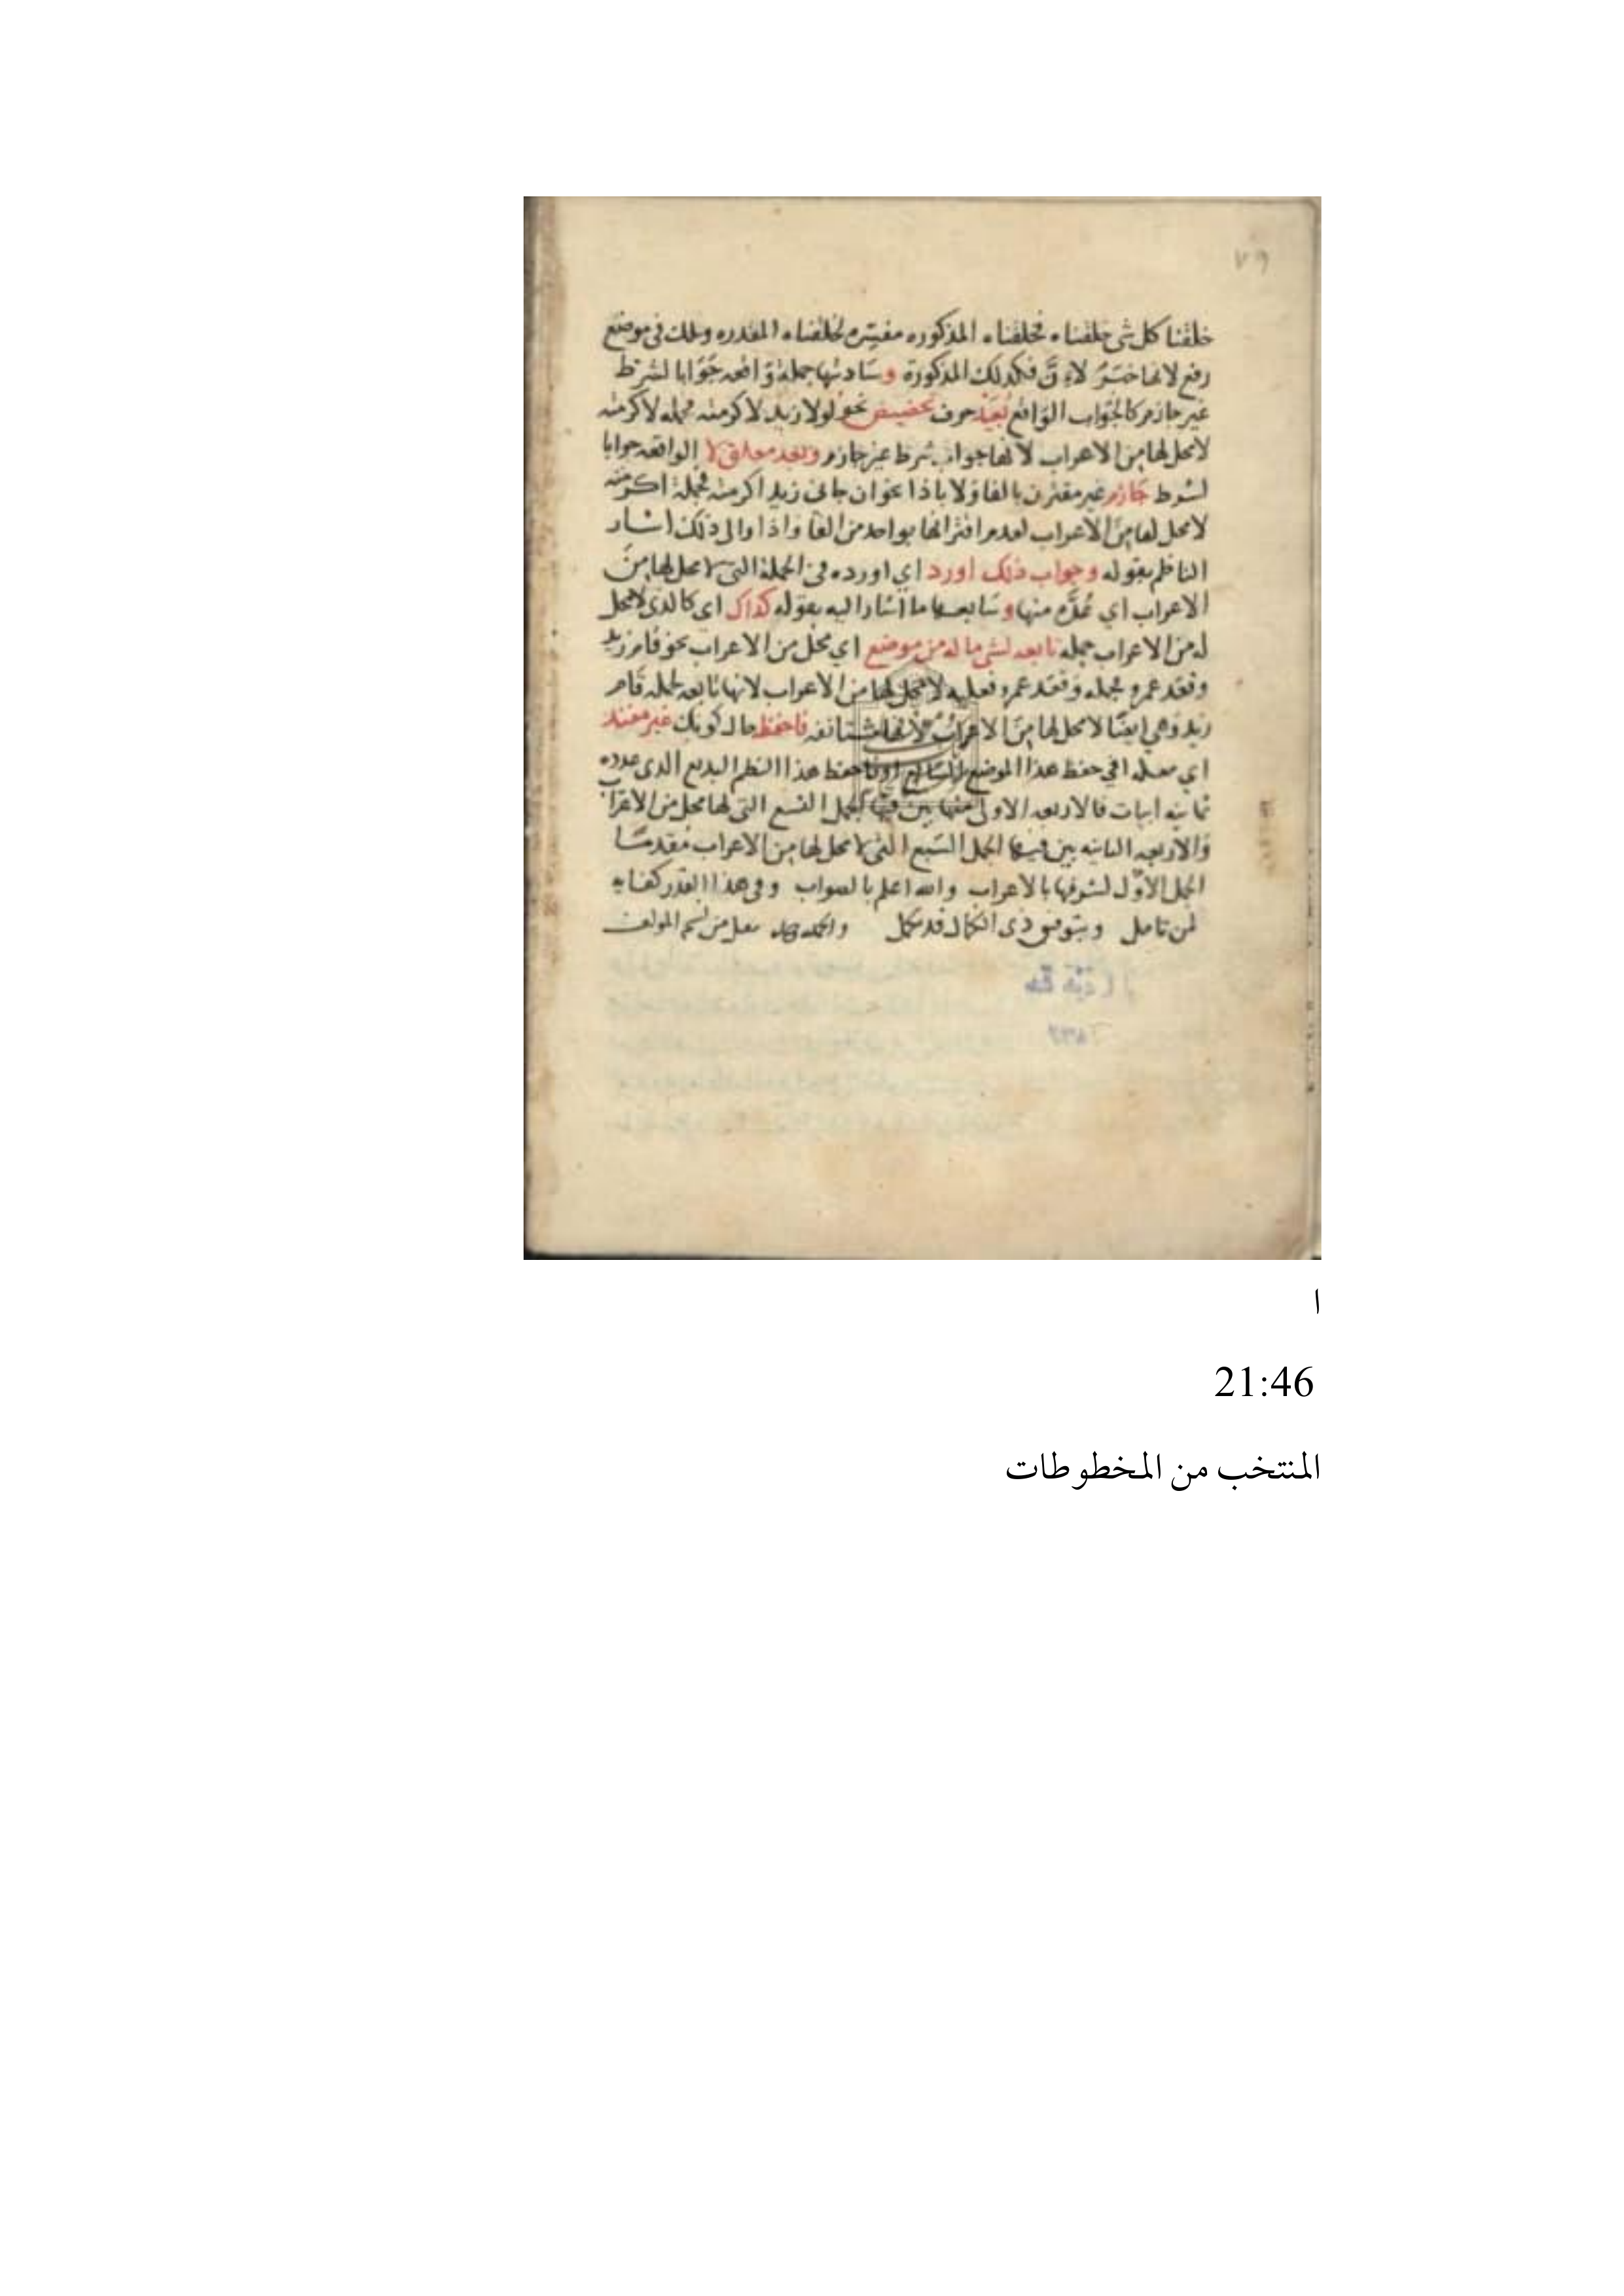 ٧٩
خلقنا كل شى خلقناه فخلقناه المذكوره مفسره لخلقناه المقدره وتلك فى موضع
رفع لانها خبر لان فكذلك المذكورة وسادستها جملة واقعه جوابا لشرط
غير جازم كالجواب الواقع بعيد حرف تحضيض نحو لولا زيد لاكرمته فجمله لاكرمته
لا محل لها من الاعراب لانها جواب شرط غير جازم وبعد معلق لا الواقعه جوابا
لشرط جازم غير مقترن بالفا ولا باذا نحو ان جانى زيد اكرمته فجملة اكرمته
لا محل لها من الاعراب لعدم اقترانها بواحد من الفا واذا والى ذلك اشار
الناظم بقوله وجواب ذلك اورد اي اورده فى الجملة التى لا محل لها من
الاعراب اي عده منها وسابعها ما اشار اليه بقوله كذاك اى كالذى لا محل
له من الاعراب جمله تابعه لشى ما له من موضع اي محل من الاعراب نحو قام زيد
وقعد عمرو فجمله وقعد عمرو فعليه لا محل لها من الاعراب لانها تابعه لجمله قام
زيد وهي ايضا لا محل لها من الاعراب لانها مستانفه فاحفظ حال كونك غير مفند
اي فى حفظ هذا الموضع السابع او فاحفظ هذا النظم البديع الذى عدده
ثمانيه ابيات فالاربعه الاولى منها بين فيها الجمل التسع التى لها محل من الاعراب
والاربعه الثانيه بين فيها الجمل السبع التى لا محل لها من الاعراب مقدما
الجمل الاول لشرفها بالاعراب والله اعلم بالصواب وفى هذا القدر كفايه
لمن تامل وبتوفيق ذى الكمال قد تكمل والحمد لله نقل من نسخ المولف
ا
21:46
المنتخب من المخطوطات